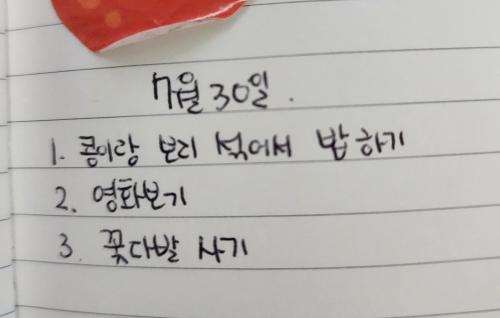 7월 30일.
1. 콩이랑 보리 섞어서 밥 하기
2. 영화보기
3. 꽃다발 사기